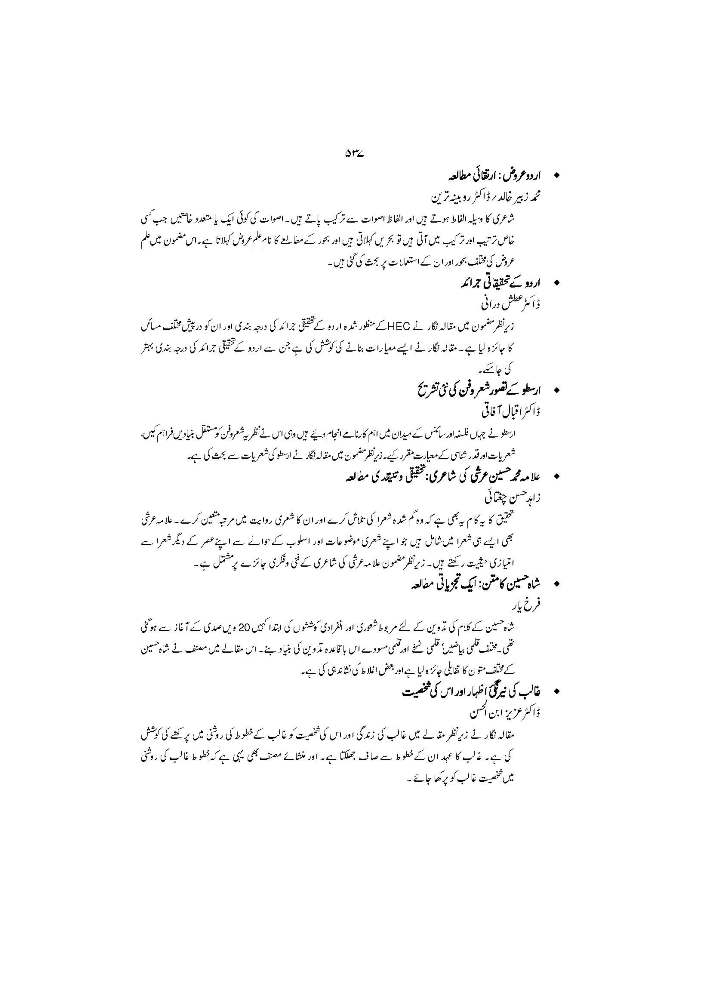 ۵۳۷
◆ اردو عروض : ارتقائی مطالعہ
محمد زبیر خالد / ڈاکٹر روبینہ ترین
شاعری کا وسیلہ الفاظ ہوتے ہیں اور الفاظ اصوات سے ترکیب پاتے ہیں۔ اصوات کی کوئی ایک یا متعدد خاصیتیں جب کسی
خاص ترتیب اور ترکیب میں آتی ہیں تو بحریں کہلاتی ہیں اور بحور کے مطالعے کا نام علم عروض کہلاتا ہے۔ اس مضمون میں علم
عروض کی مختلف بحور اور ان کے استعمالات پر بحث کی گئی ہیں۔
◆ اردو کے تحقیقاتی جرائد
ڈاکٹر عطش درانی
زیرِ نظر مضمون میں مقالہ نگار نے HEC کے منظور شدہ اردو کے تحقیقی جرائد کی درجہ بندی اور ان کو درپیش مختلف مسائل
کا جائزہ لیا ہے۔ مقالہ نگار نے ایسے معیارات بنانے کی کوشش کی ہے جن سے اردو کے تحقیقی جرائد کی درجہ بندی بہتر
کی جا سکے۔
◆ ارسطو کے تصور شعر و فن کی نئی تشریح
ڈاکٹر اقبال آفاقی
ارسطو نے جہاں فلسفہ اور سائنس کے میدان میں اہم کارنامے انجام دیئے ہیں وہی اس نے نظریہ شعر و فن کو مستقل بنیادیں فراہم کیں،
شعریات اور قدر شناسی کے معیارت مقرر کیے۔ زیرِ نظر مضمون میں مقالہ نگار نے ارسطو کی شعریات سے بحث کی ہے۔
◆ علامہ محمد حسین عرشی کی شاعری: تحقیقی و تنقیدی مطالعہ
زاہد حسن چغتائی
تحقیق کا یہ کام یہ بھی ہے کہ وہ گم شدہ شعرا کی تلاش کرے اور ان کا شعری روایت میں مرتبہ متعین کرے۔ علامہ عرشی
بھی ایسے ہی شعرا میں شامل ہیں جو اپنے شعری موضوعات اور اسلوب کے حوالے سے اپنے عصر کے دیگر شعرا سے
امتیازی حیثیت رکھتے ہیں۔ زیرِ نظر مضمون علامہ عرشی کی شاعری کے فنی و فکری جائزے پر مشتمل ہے۔
◆ شاہ حسین کا متن: ایک تجزیاتی مطالعہ
فرخ یار
شاہ حسین کے کلام کی تدوین کے لئے مربوط شعوری اور انفرادی کوششوں کی ابتدا کہیں 20 ویں صدی کے آغاز سے ہو گئی
تھی۔ مختلف قلمی بیاضیں، قلمی نسخے اور قلمی مسودے اس باقاعدہ تدوین کی بنیاد بنے۔ اس مقالے میں مصنف نے شاہ حسین
کے مختلف متون کا تقابلی جائزہ لیا ہے اور بعض اغلاط کی نشاندہی کی ہے۔
◆ غالب کی نیرنگئ اظہار اور اس کی شخصیت
ڈاکٹر عزیز ابن الحسن
مقالہ نگار نے زیرِ نظر مقالے میں غالب کی زندگی اور اس کی شخصیت کو غالب کے خطوط کی روشنی میں پرکھنے کی کوشش
کی ہے۔ غالب کا عہد ان کے خطوط سے صاف جھلکتا ہے۔ اور منشائے مصنف بھی یہی ہے کہ خطوط غالب کی روشنی
میں شخصیت غالب کو پرکھا جائے۔